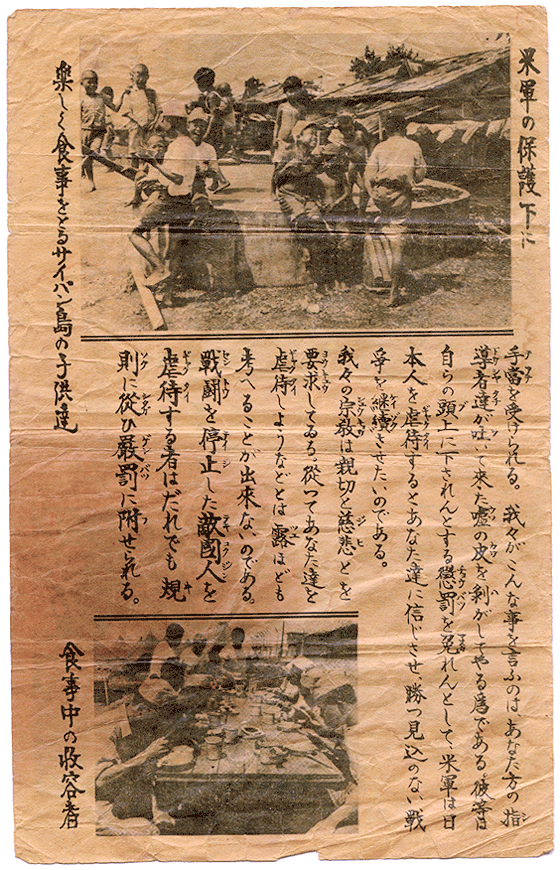 米軍の保護下に
楽しく食事をとるサイパン島の子供達
手當を受けられる。我々がこんな事を言ふのは、あなた方の指
導者達が吐いて来た嘘の皮を剥がしてやる爲である。彼等は
自らの頭上に下されんとする懲罰を免れんとして、米軍は日
本人を虐待するとあなた達に信じさせ、勝つ見込のない戦
爭を継續させたいのである。
我々の宗敎は親切と慈悲とを
要求してゐる。從つてあなた達を
虐待しようなどとは露ほども
考へることが出来ないのである。
戦闘を停止した敵國人を
虐待する者はだれでも規
則に從ひ厳罰に附せられる。
食事中の收容者